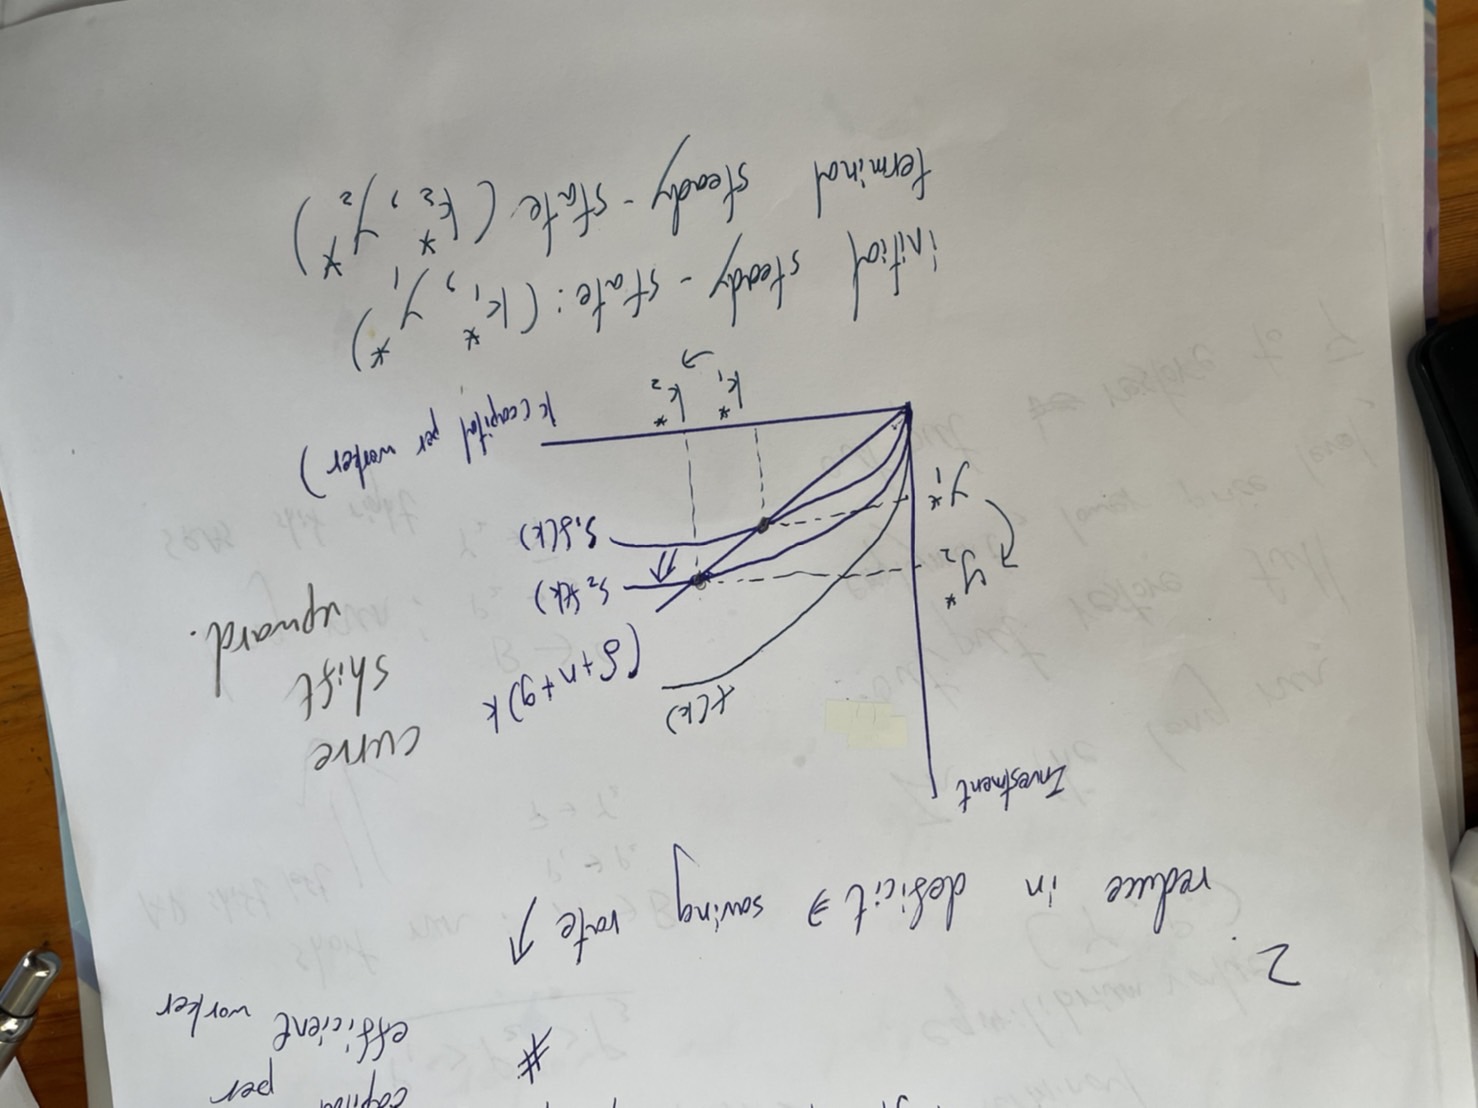 capital per
#
efficient worker
2.
reduce in deficit ⇒ saving rate ↑
Investment
f(k)
(δ+n+g)k
curve
shift
upward.
y₂*
s₂f(k)
s₁f(k)
y₁*
k (capital per worker)
k₁* → k₂*
initial steady-state: (k₁*, y₁*)
terminal steady-state (k₂*, y₂*)